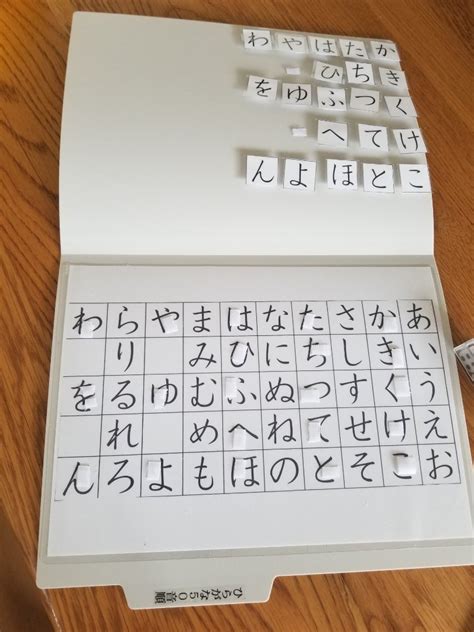 かきくけこ
たちつてと
はひふへほ
やゆよ
わをん
あいうえお
かきくけこ
さしすせそ
たちつてと
なにぬねの
はひふへほ
まみむめも
やゆよ
らりるれろ
わをん
ひらがな50音順